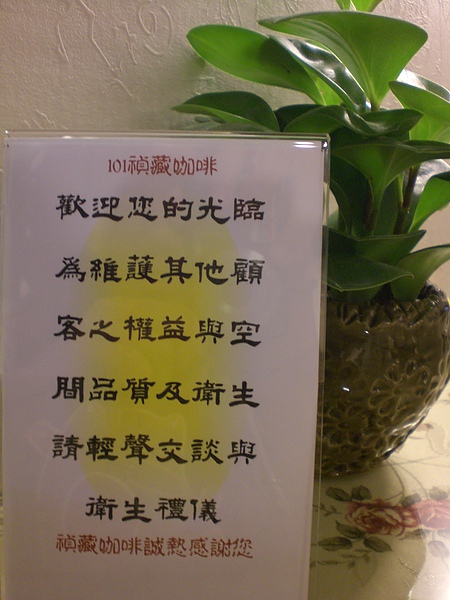 101禎藏咖啡
歡迎您的光臨
為維護其他顧
客之權益與空
間品質及衛生
請輕聲交談與
衛生禮儀
禎藏咖啡誠熱感謝您